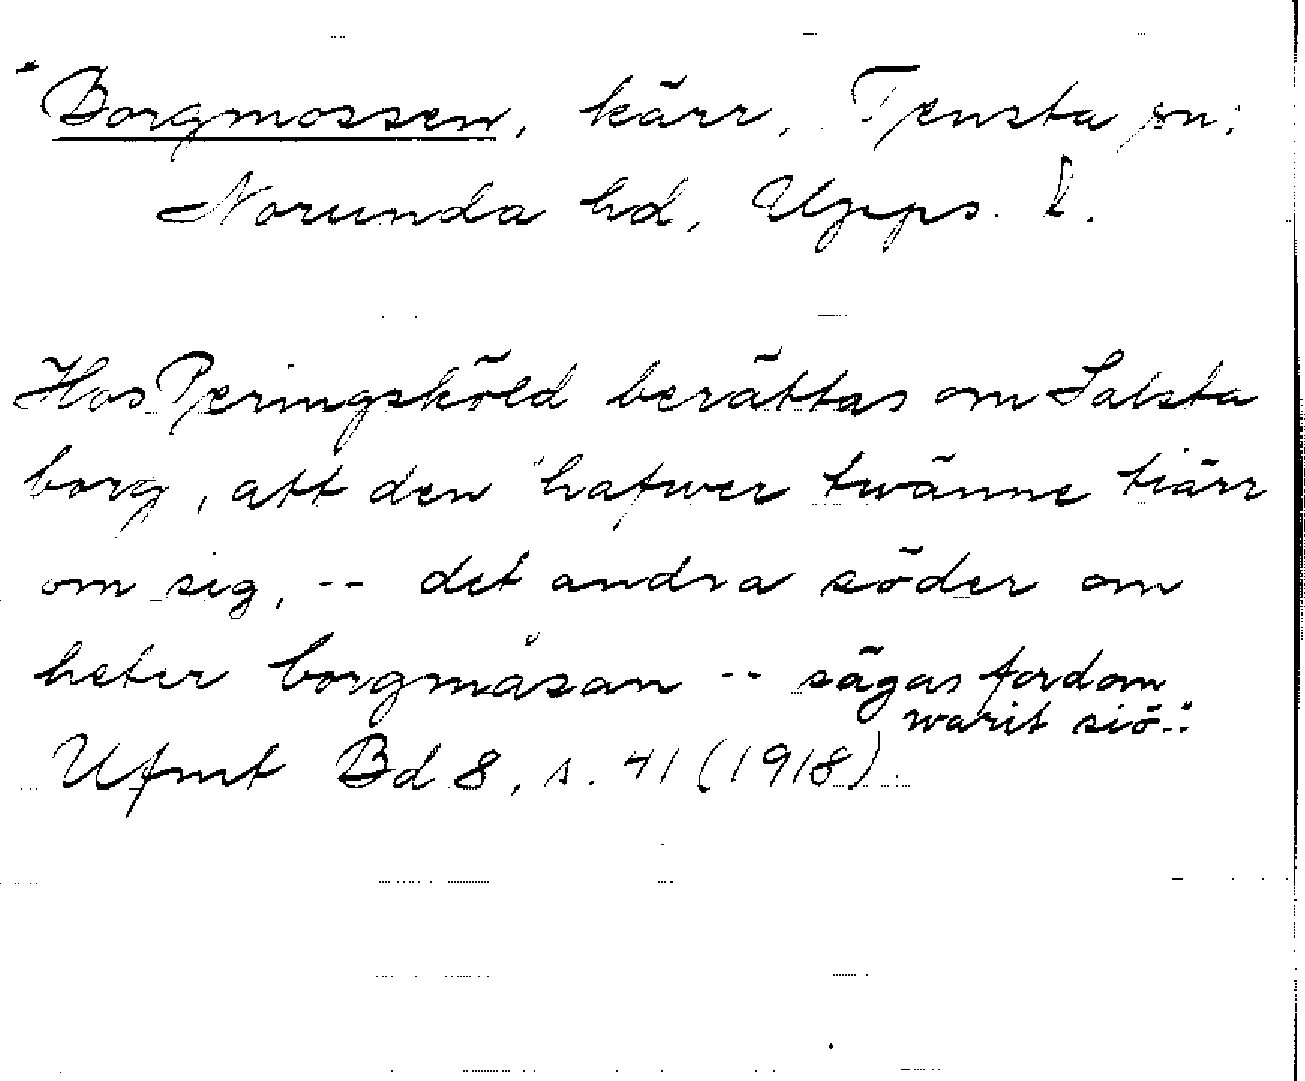 Borgmossen, kärr, Tensta sn;
Norunda hd, Upps. l.
Hos Peringsköld berättas om Salsta
borg, att den "hafwer twänne tiärr
om sig, -- det andra söder om
heter borgmåsan -- sägas fordom
warit siö."
Ufmt Bd 8, s. 41 (1918)